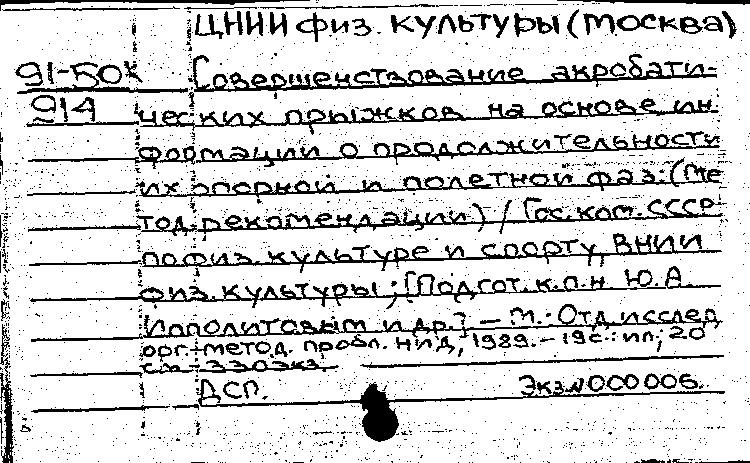 ЦНИИ физ. культуры (Москва)
91-50к
914
Совершенствование акробати-
ческих прыжков на основе ин
формации о продолжительности
их опорной и полетной фаз: (Ме
тод. рекомендации) / Гос. ком. СССР
по физ. культуре и спорту, ВНИИ
физ. культуры; [Подгот. к.п.н Ю.А.
Ипполитовым и др.] – М.: Отд исслед
орг.-метод. пробл. НИД, 1989. – 19 с.: ил; 20
см – 330 экз.
ДСП. Экз. N 000006.